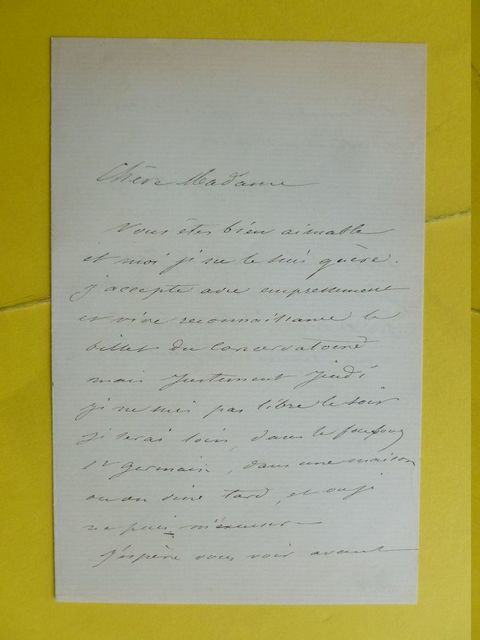 Chère Madame
Vous êtes bien aimable
et moi je ne le suis guère.
j'accepte avec empressement
et vive reconnaissance le
billet du Conservatoire
mais justement Jeudi
je ne suis pas libre le soir
je serai loin, dans le faubourg
St germain, dans une maison
ou on dine tard, et ou je
ne puis m'excuser
J'espère vous voir avant